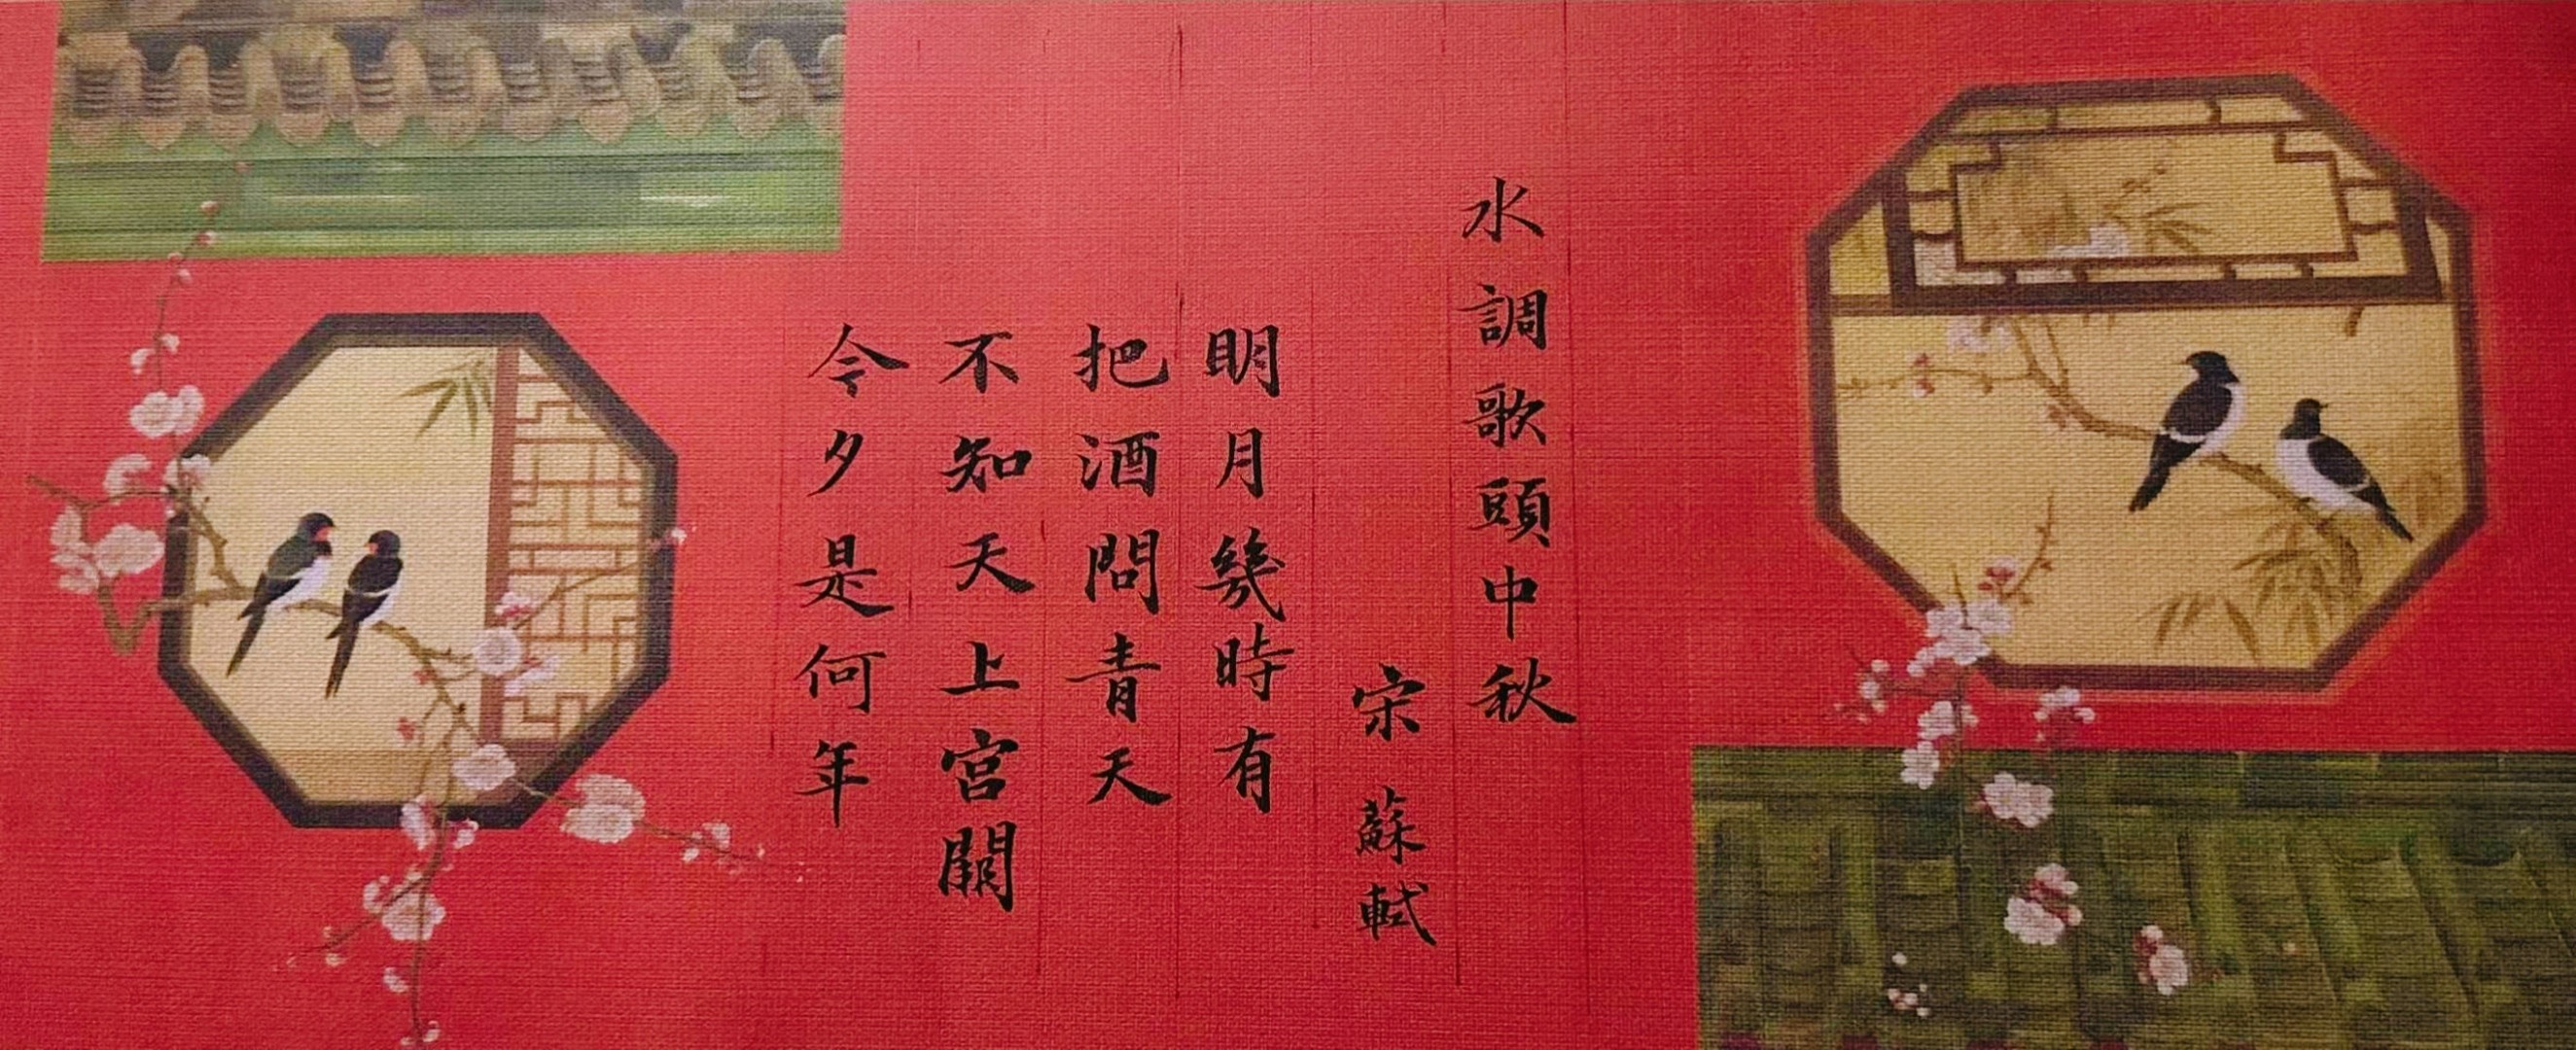 水調歌頭中秋
宋 蘇軾
明月幾時有
把酒問青天
不知天上宮闕
今夕是何年